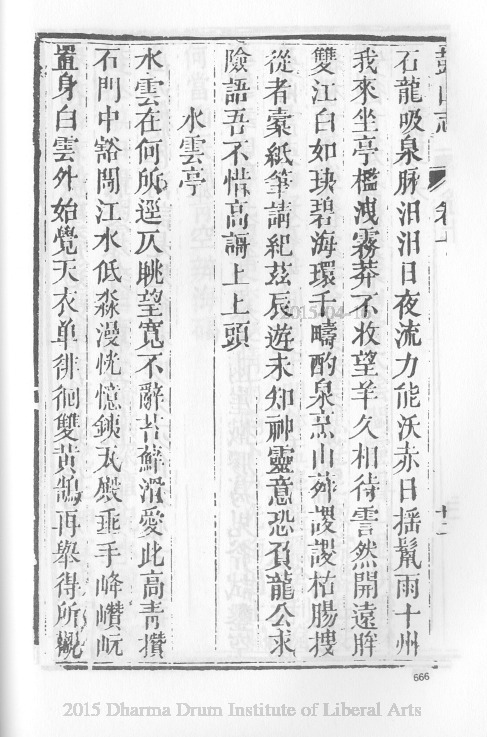 鼓山志 卷十 十二
石龍吸泉脉汨汨日夜流力能沃赤日揺鬣雨十州
我來坐亭檻洩霧莽不收望羊久相待雲然開遠眸
雙江白如玦碧海環千疇酌泉烹山荈謖謖枯腸搜
從者橐紙筆請紀茲辰遊未知神靈意恐負龍公求
險語吾不惜高謌上上頭
水雲亭
水雲在何所逕仄眺望寛不辭苔蘚滑愛此高青攢
石門中豁閜江水低淼漫恍憶鐵瓦殿垂手峰巑岏
置身白雲外始覺天衣单徘徊雙黄鵠再舉得所觀
2015-04-1
666
2015 Dharma Drum Institute of Liberal Arts